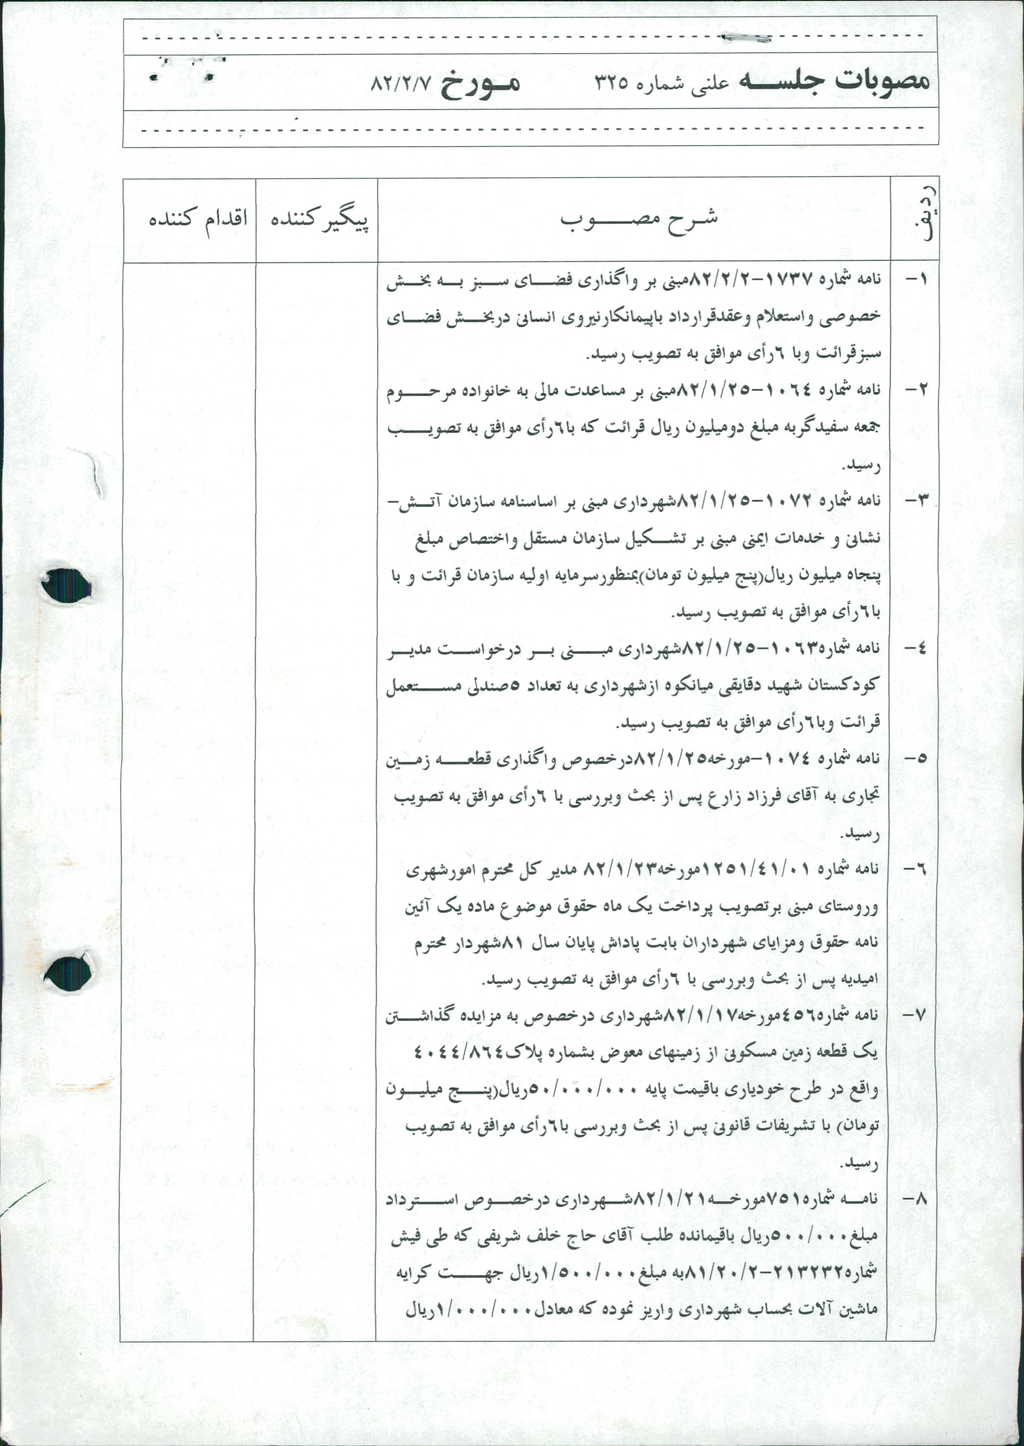 مصوبات جلســـه علنی شماره ۳۲۵ مـورخ ۸۲/۲/۷
ردیف شـرح مصـــوب پیگیر کننده اقدام کننده
۱- نامه شماره ۱۷۳۷-۸۲/۲/۲مبنی بر واگذاری فضـای سـبز بـه بخـش
خصوصی واستعلام وعقدقرارداد باپیمانکارنیروی انسانی دربخـش فضـای
سبزقرائت وبا ۶رأی موافق به تصویب رسید.
۲- نامه شماره ۱۰۶۴-۸۲/۱/۲۵مبنی بر مساعدت مالی به خانواده مرحـوم
جمعه سفیدگربه مبلغ دومیلیون ریال قرائت که با۶رأی موافق به تصویـب
رسید.
۳- نامه شماره ۱۰۷۲-۸۲/۱/۲۵شهرداری مبنی بر اساسنامه سازمان آتـش-
نشانی و خدمات ایمنی مبنی بر تشـکیل سازمان مستقل واختصاص مبلغ
پنجاه میلیون ریال(پنج میلیون تومان)بمنظورسرمایه اولیه سازمان قرائت و با
با۶رأی موافق به تصویب رسید.
۴- نامه شماره۱۰۶۳-۸۲/۱/۲۵شهرداری مبـنی بـر درخواسـت مدیـر
کودکستان شهید دقایقی میانکوه ازشهرداری به تعداد ۵صندلی مسـتعمل
قرائت وبا۶رأی موافق به تصویب رسید.
۵- نامه شماره ۱۰۷۴-مورخه۸۲/۱/۲۵درخصوص واگذاری قطعـه زمـین
تجاری به آقای فرزاد زارع پس از بحث وبررسی با ۶رأی موافق به تصویب
رسید.
۶- نامه شماره ۱۲۵۱/۴۱/۰۱مورخه۸۲/۱/۲۳ مدیر کل محترم امورشهری
وروستای مبنی برتصویب پرداخت یک ماه حقوق موضوع ماده یک آئین
نامه حقوق ومزایای شهرداران بابت پاداش پایان سال ۸۱شهردار محترم
امیدیه پس از بحث وبررسی با ۶رأی موافق به تصویب رسید.
۷- نامه شماره۴۵۶مورخه۸۲/۱/۱۷شهرداری درخصوص به مزایده گذاشـتن
یک قطعه زمین مسکونی از زمینهای معوض بشماره پلاک۴۰۴۴/۸۶۴
واقع در طرح خودیاری باقیمت پایه ۵۰/۰۰۰/۰۰۰ریال(پنـج میلیـون
تومان) با تشریفات قانونی پس از بحث وبررسی با۶رأی موافق به تصویب
رسید.
۸- نامـه شماره۷۵۱مورخـه۸۲/۱/۲۱شـهرداری درخصـوص اسـترداد
مبلغ۵۰۰/۰۰۰ریال باقیمانده طلب آقای حاج خلف شریفی که طی فیش
شماره۲۱۳۲۳۲-۸۱/۲۰/۲به مبلغ۱/۵۰۰/۰۰۰ریال جهـت کرایه
ماشین آلات بحساب شهرداری واریز نموده که معادل۱/۰۰۰/۰۰۰ریال